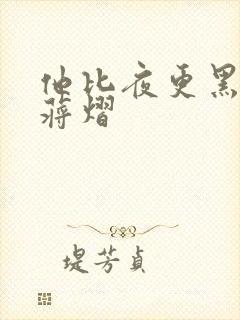 他比夜更黑
蒋熠
堤芳贞